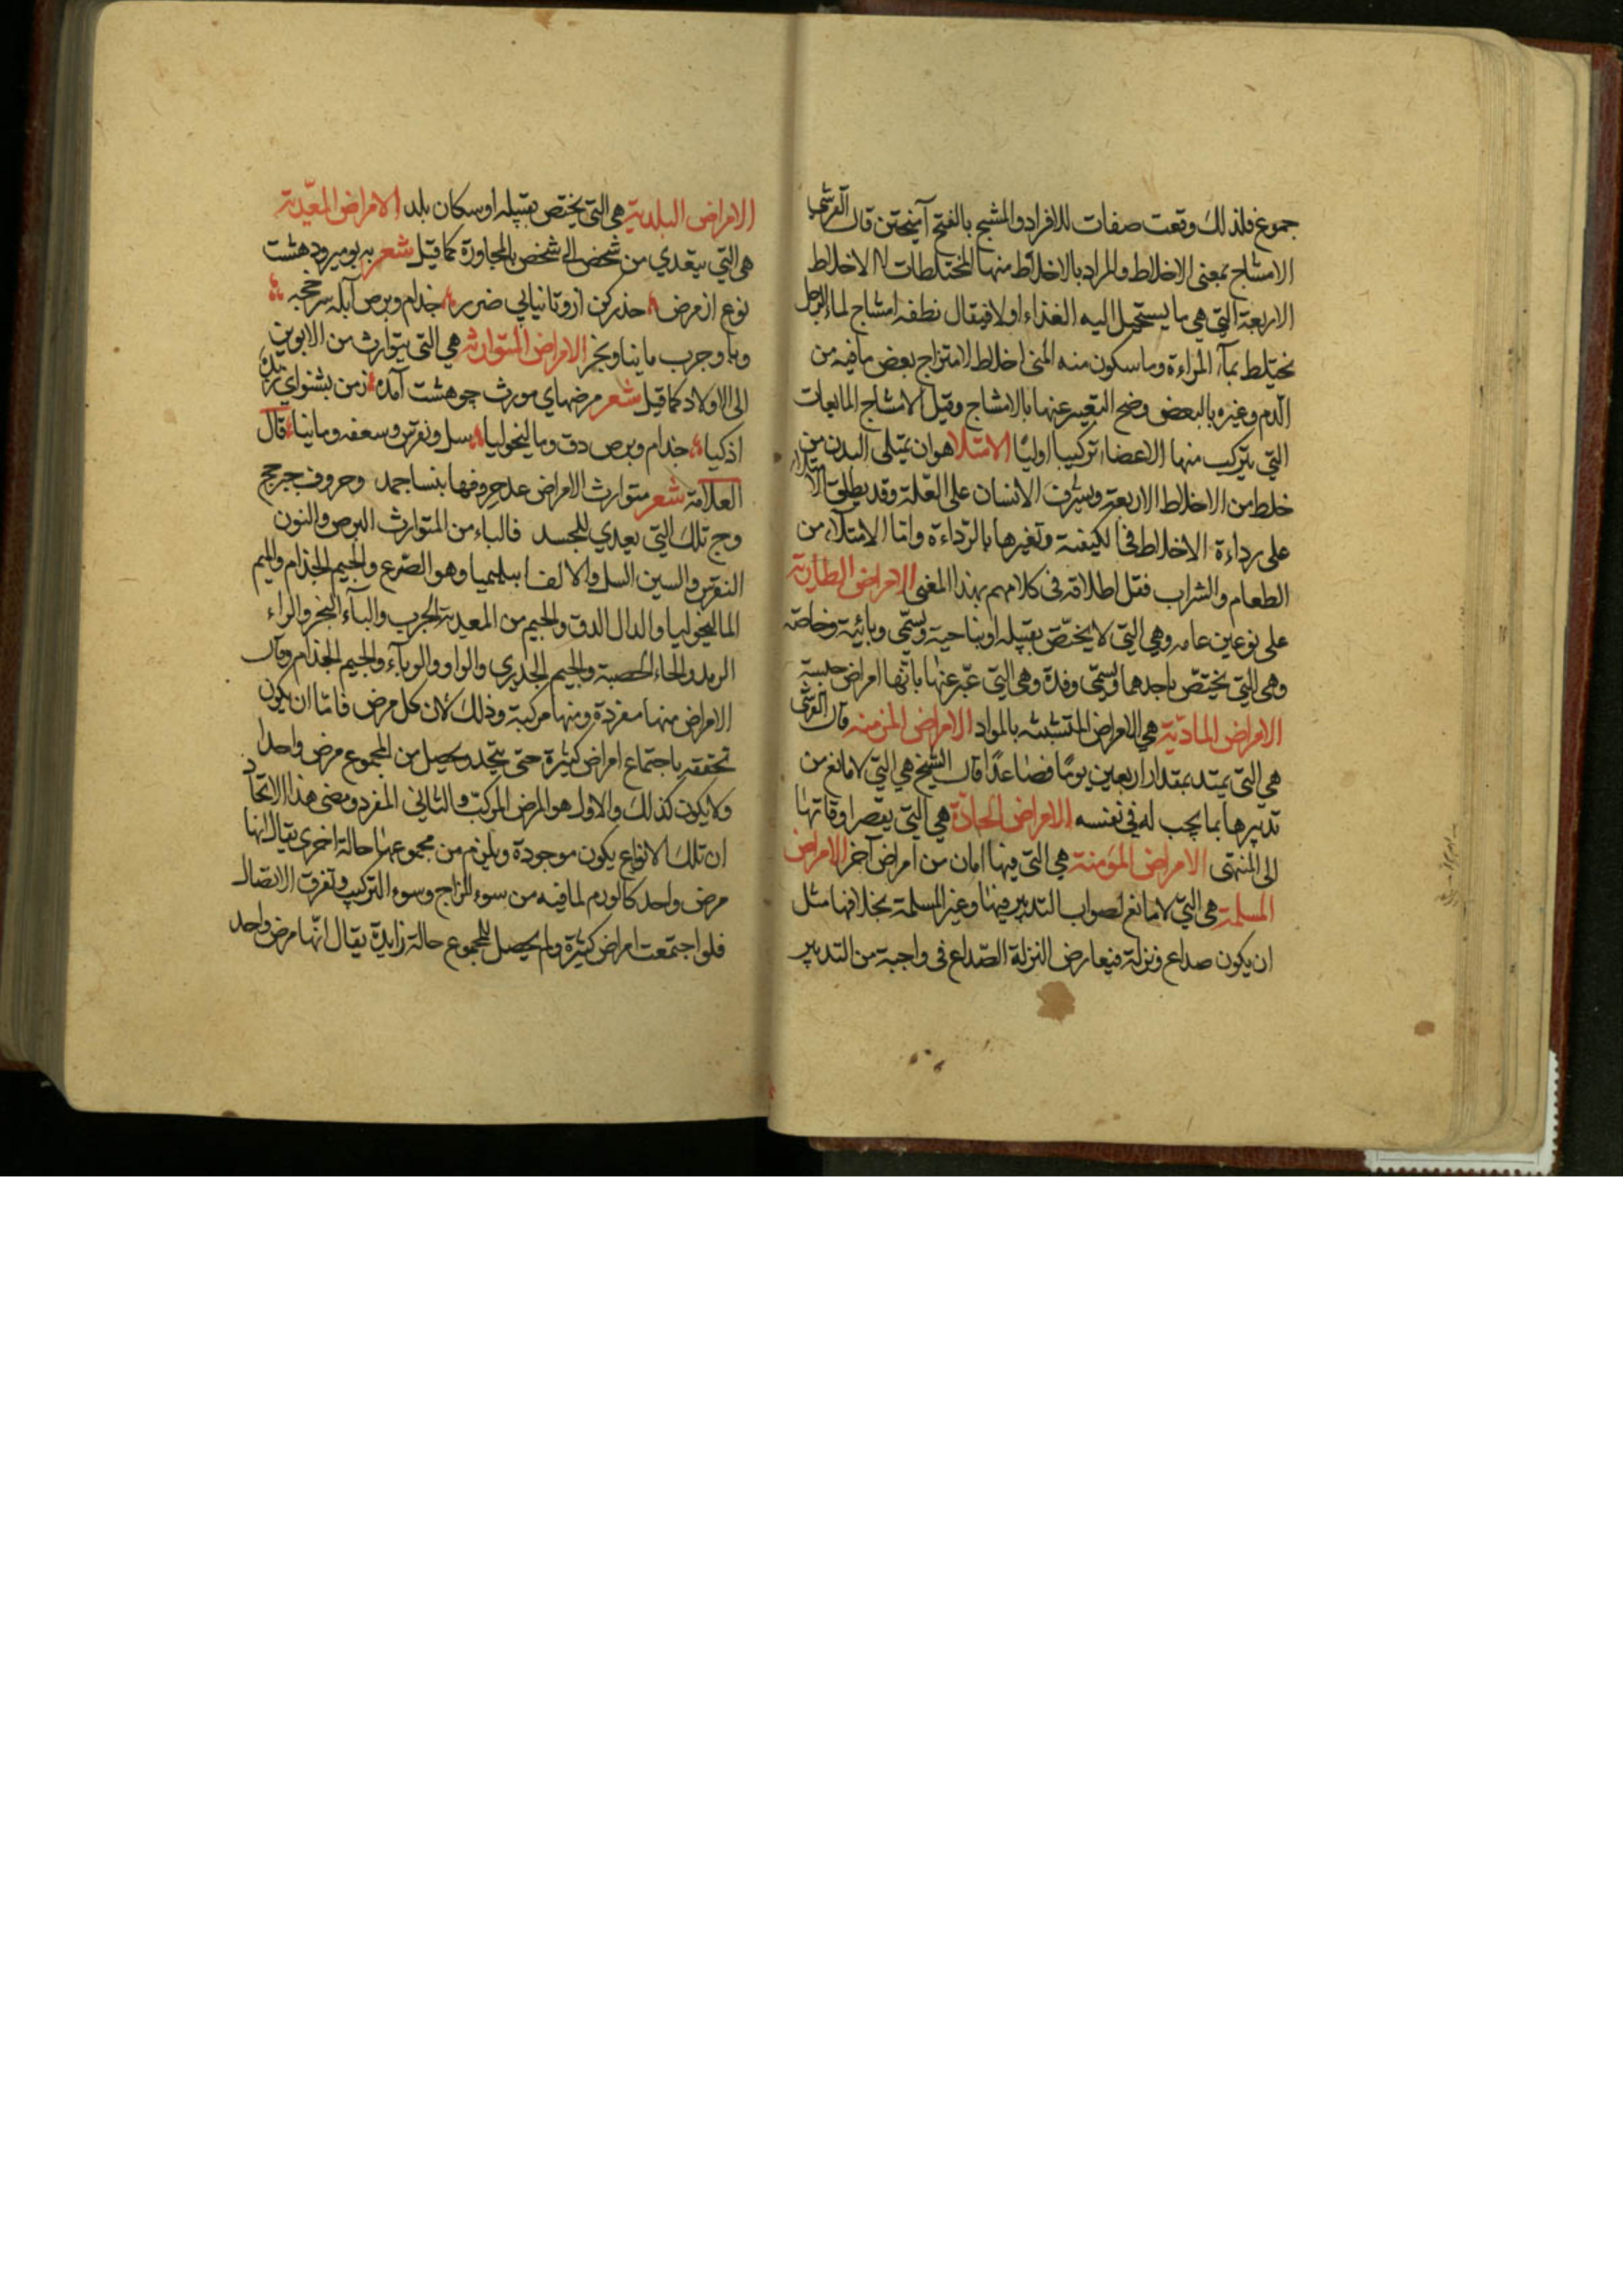 جموع فلذلك وقعت صفات للافراد والمشج بالفتح آميختن قال القرشى
الامشاج بمعنى الاخلاط والمراد بالاخلاط منها المختلطات لا الاخلاط
الاربعة التي هي ما يستحيل اليه الغذاء اولا فيقال نطفه امشاج لماء الرجل
يختلط بمآء المراءة وما سكون منه المنى اخلاط لامتزاج بعض ما فيه من
الدم وغيره بالبعض وضح التعبير عنها بالامشاج وقيل الامشاج المايعات
التي يتركب منها الاعضاء تركيبا اوليًا الامتلا هو ان يمتلى البدن من
خلط من الاخلاط الاربعة ويشرف الانسان على العلة وقد يطلق الامتلاء
على رداءة الاخلاط فى الكيفية وتغيرها بالرداءة واما الامتلاء من
الطعام والشراب فقل اطلاقه فى كلامهم بهذا المعنى الامراض الطارية
على نوعين عامه وهي التي لا يختص بقبيله او بناحية ويسمى وبائية وخاصه
وهى التي يختص باحدهما ويسمى وفدة وهى التي عبر عنها بانها امراض جنسية
الامراض المادية هي الامراض المتشبثه بالمواد الامراض المزمنه قال القرشى
هي التي يمتد بمقدار اربعين يومًا فصاعدًا قال الشيخ هي التي لا مانع من
تدبيرها بما يجب له فى نفسه الامراض الحادة هي التي يقصر اوقاتها
الى المنتهى الامراض المؤمنة هي التي فيها امان من امراض آخر الامراض
المسلمة هي التي لا مانع لصواب التدبير فيها وغير المسلمة بخلافها مثل
ان يكون صداع ونزلة فيعارض النزلة الصداع فى واجبة من التدبير
الامراض البلدية هي التي يختص بقبيله او سكان بلد الامراض المعدية
هى التي يتعدي من شخص الى شخص بالمجاورة كما قيل شعر به بو ميرود هشت
نوع از مرض حذر كن ازو تا نيابي ضرر جذام وبرص آبله سرخجه
وبا وجرب ماينا وبخر الامراض المتوارثة هي التي يتوارث من الابوين
الى الاولاد كما قيل شعر مرضهاي مورث چو هشت آمده ز من بشنو اي زبده
اذكيا جذام وبرص دق وماليخوليا سل ونقرس وسعفه وماينا قال
العلامة شعر متوارث الامراض عد حروفها بنسا جمد وحروف جربج
وج تلك التي يعدي للجسد فالباء من المتوارث البرص والنون
النقرس والسين السل والالف ابيليميا وهو الصرع والجيم الجذام والميم
الماليخوليا والدال الدق والجيم من المعدية الجرب والبآء البخر والراء
الرمد والحاء الحصبة والجيم الجدري والواو الوبآء والجيم الجذام وقال
الامراض منها مفردة ومنها مركبة وذلك لان كل مرض فاما ان يكون
تحققه باجتماع امراض كثيرة حتى يتحد ويحصل من المجموع مرض واحد
ولا يكون كذلك والاول هو المرض المركب والثاني المفرد ومعنى هذا الاتحاد
ان تلك الانواع يكون موجودة ويلزم من مجموعها حالة اخرى يقال انها
مرض واحد كالورم لما فيه من سوء المزاج وسوء التركيب وتفرق الاتصال
فلو اجتمعت امراض كثيرة ولم يحصل للمجموع حالة زايدة يقال انها مرض واحد